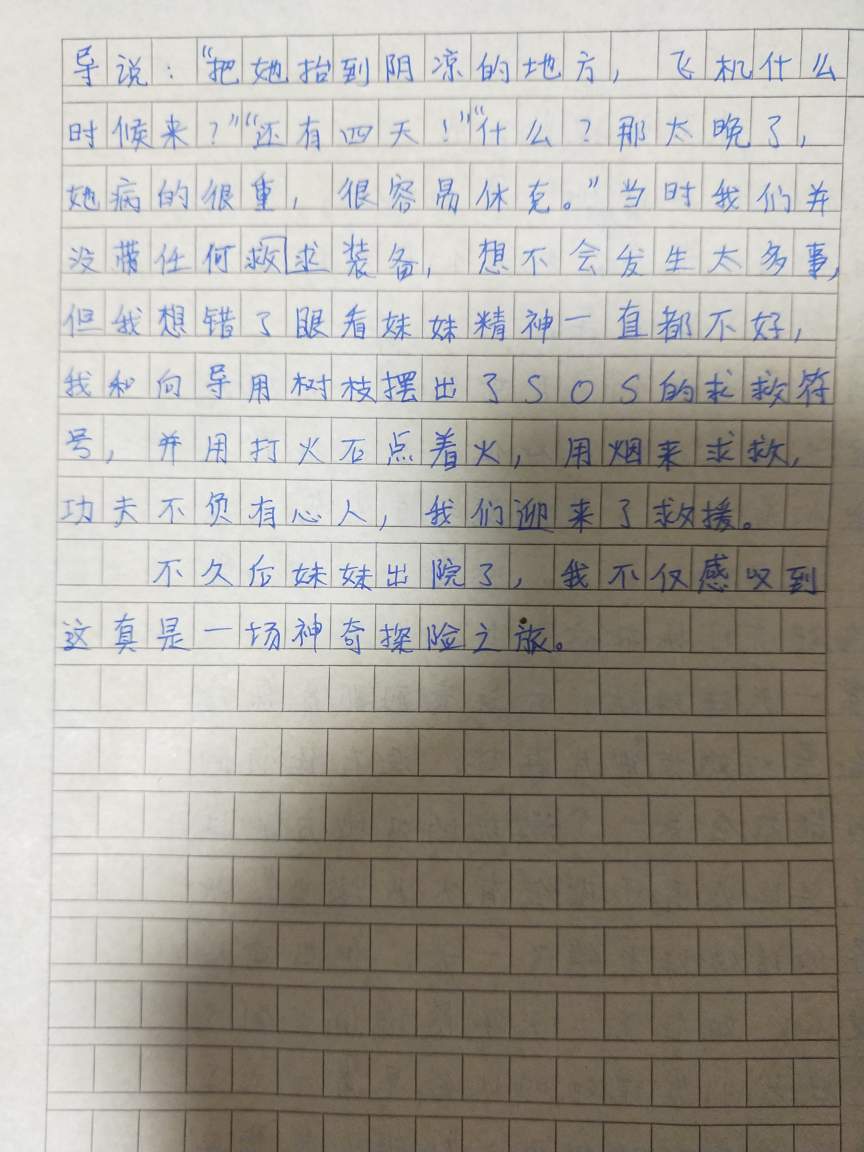 导说：“把她抬到阴凉的地方，飞机什么
时候来？”“还有四天！”“什么？那太晚了，
她病的很重，很容易休克。”当时我们并
没带任何救求装备，想不会发生太多事，
但我想错了眼看妹妹精神一直都不好，
我和向导用树枝摆出了SOS的求救符
号，并用打火石点着火，用烟来求救，
功夫不负有心人，我们迎来了救援。
不久后妹妹出院了，我不仅感叹到
这真是一场神奇探险之旅。